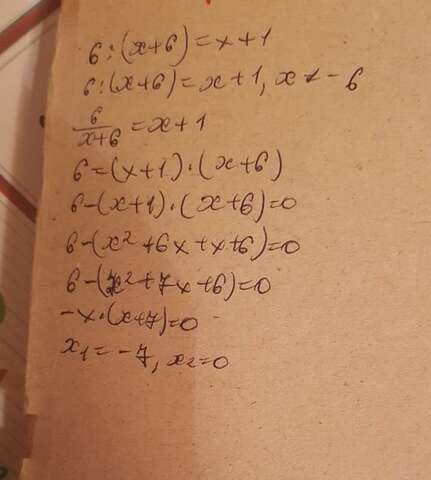 6:(x+6)=x+1
6:(x+6)=x+1, x≠-6
6/(x+6)=x+1
6=(x+1)·(x+6)
6-(x+1)·(x+6)=0
6-(x²+6x+x+6)=0
6-(x²+7x+6)=0
-x·(x+7)=0
x₁=-7, x₂=0